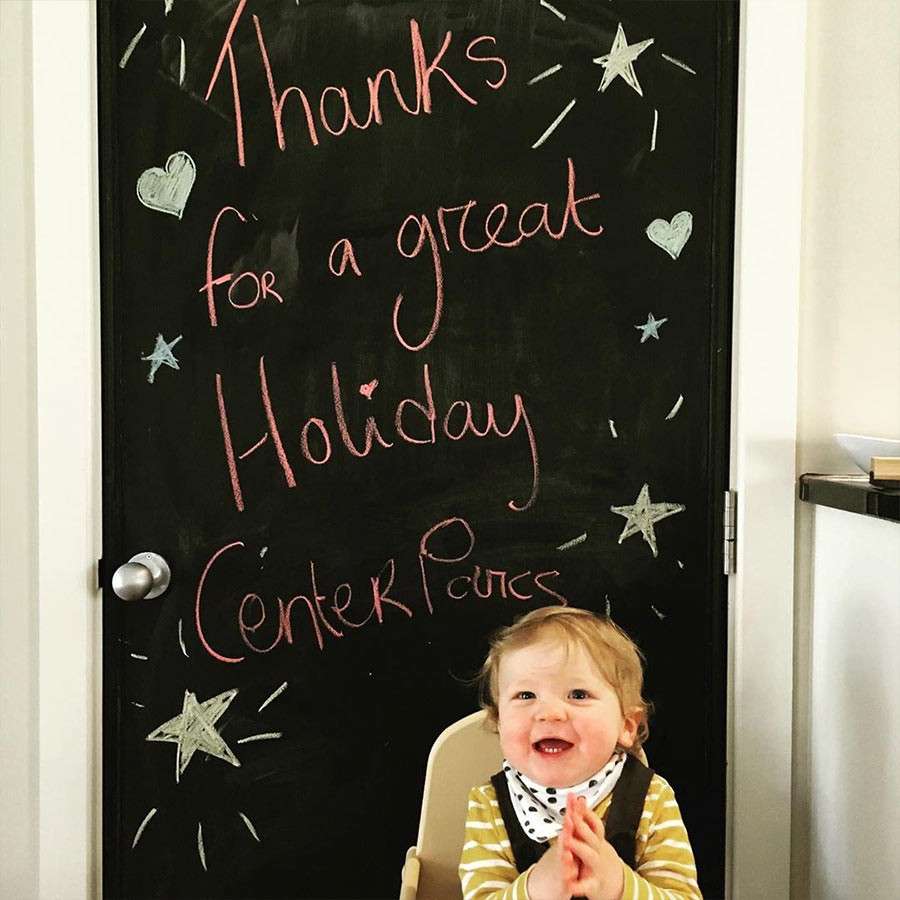 Thanks
for a great
Holiday
Center Parcs